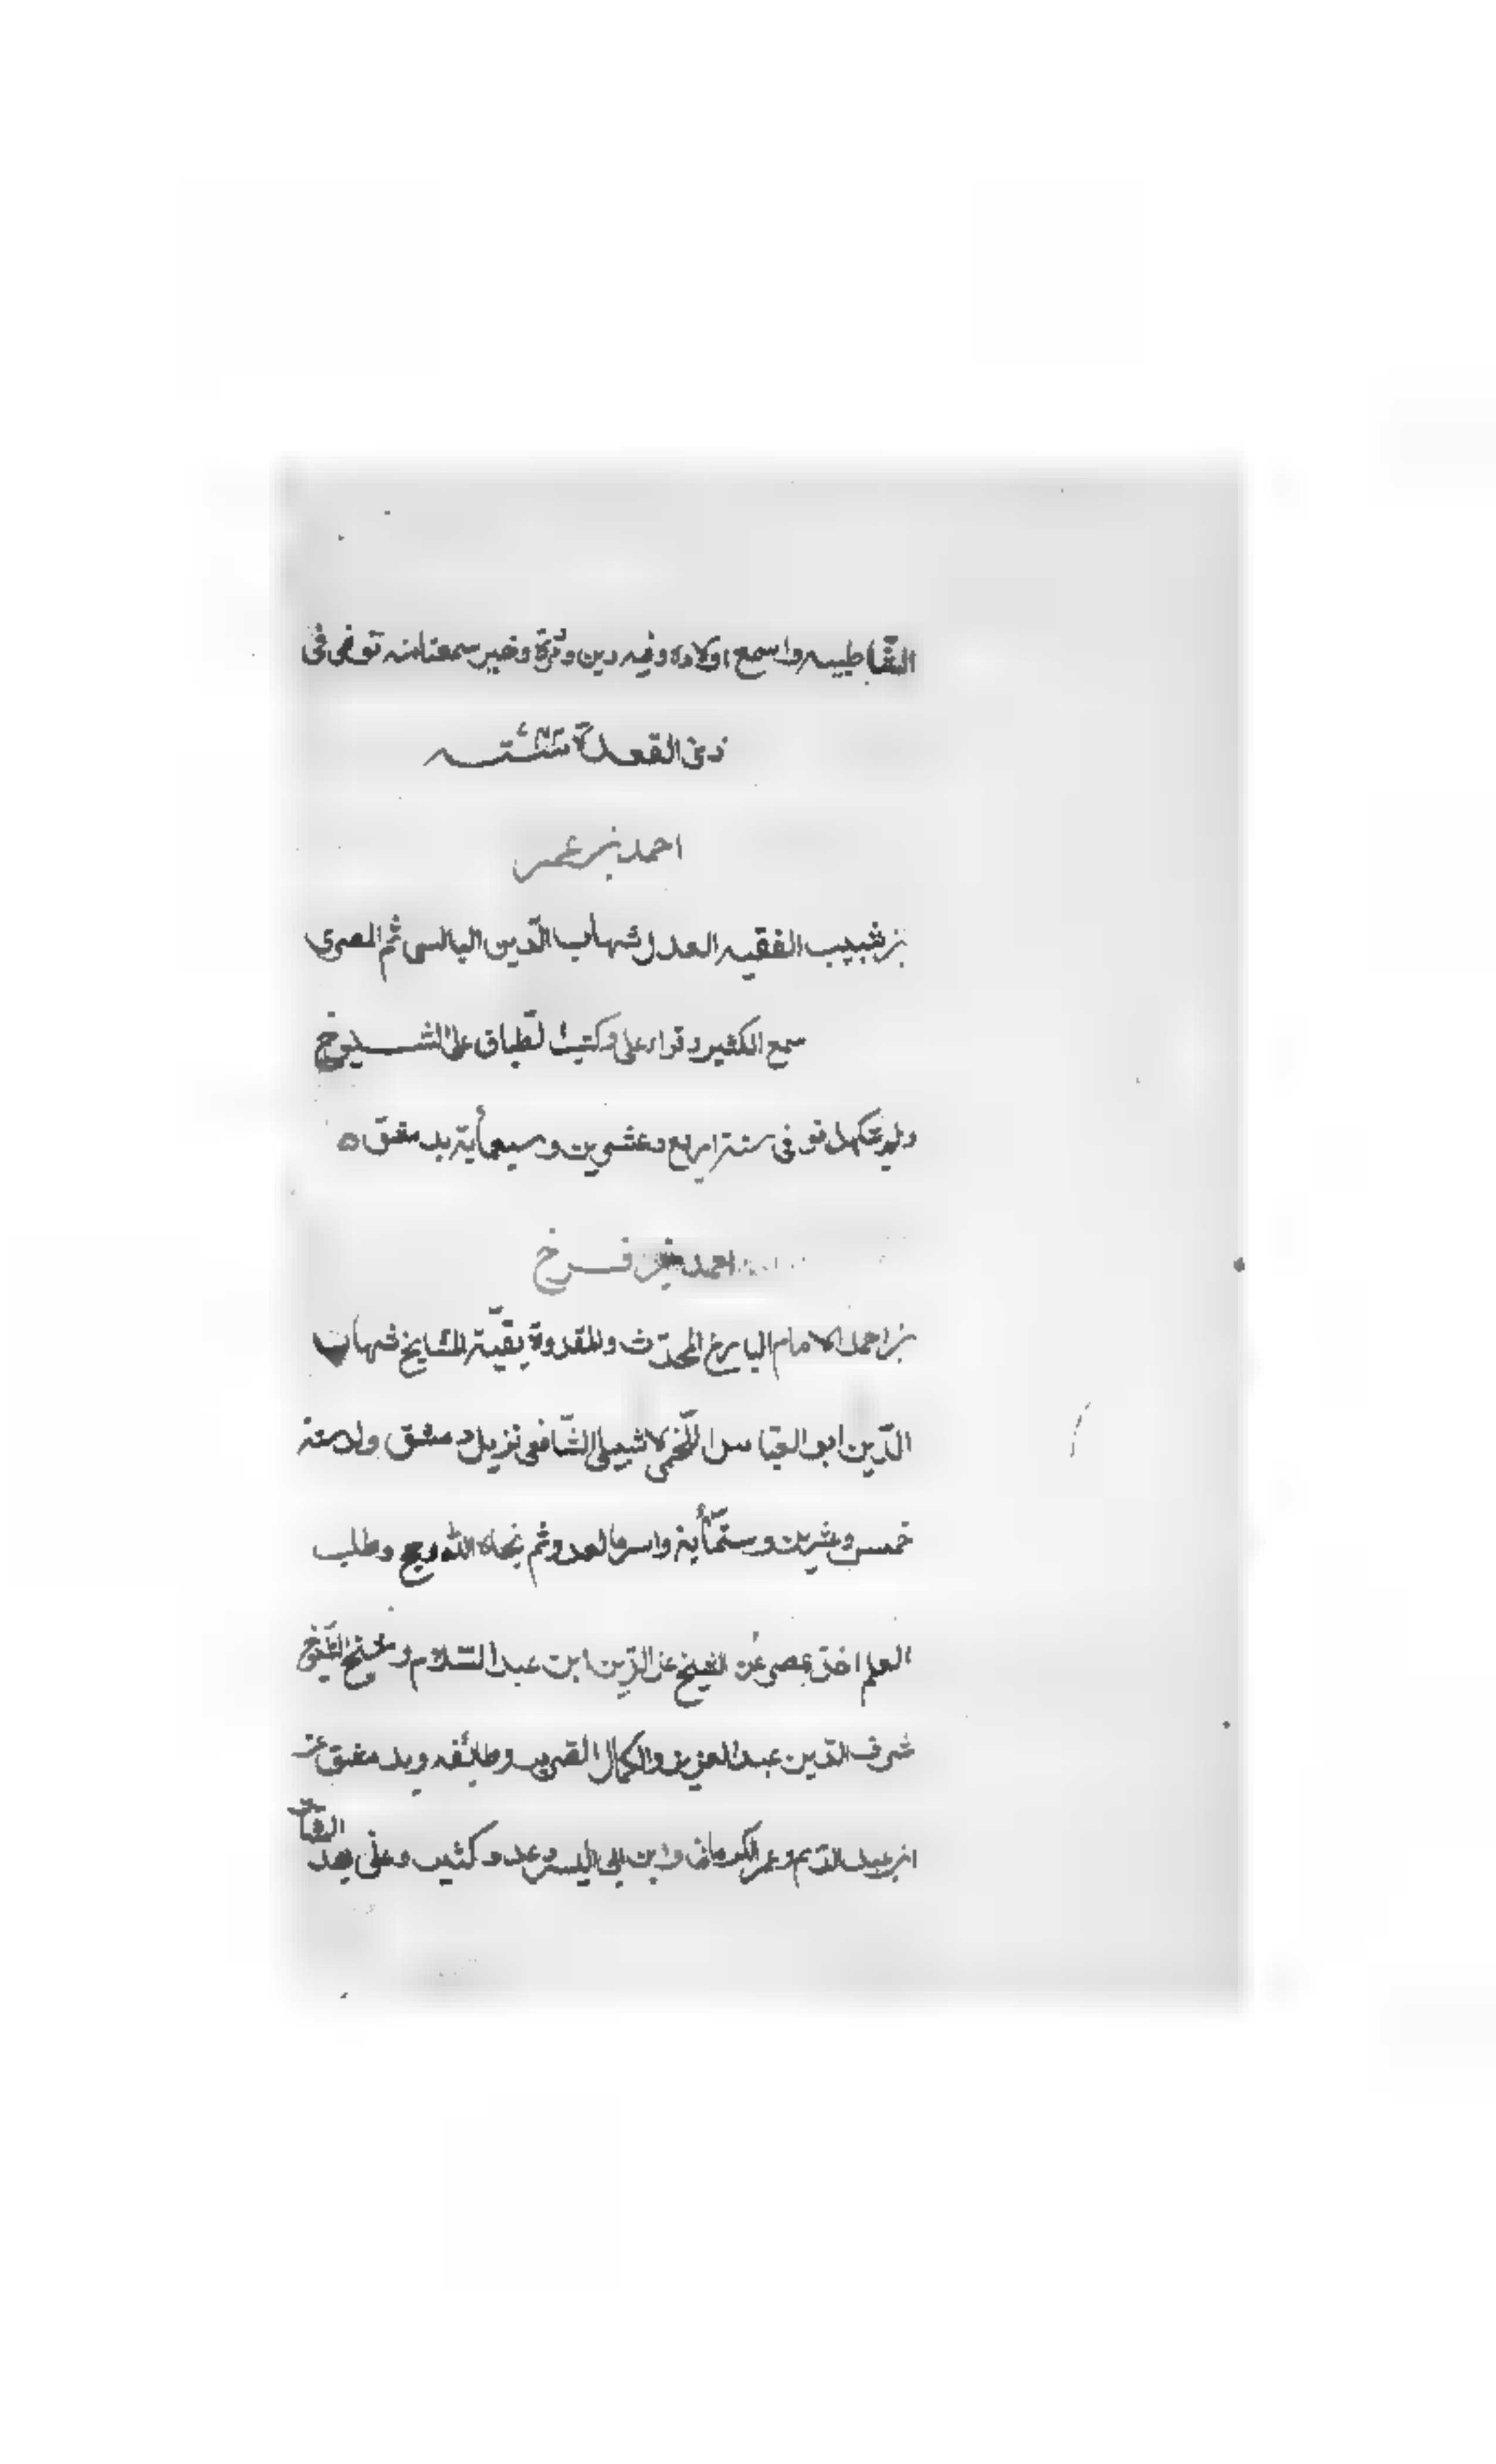 الشاطبيه واسمع اولاده وفيه دين ومروة وخير سمعنا منه توفى فى
ذى القعدة سنة
احمد بن عمر
بن شبيب الفقيه العدل شهاب الدّين البالسى ثم المصرى
سمع الكثير وقراء على وكتب الطباق على الشيوخ
ولم يتكهل توفى سنة اربع وعشرين وسبعمأية بدمشق
احمد بن فرح
بن احمد الامام البارع المحدّث والقدوة بقيّة المشايخ شهاب
الدّين ابو العبّاس اللّخمى الاشبيلى الشّافعى نزيل دمشق ولد سنة
خمس وعشرين وستّمأية واسره العدو ثم نجاه اللّه وحج وطلب
العلم اخذ بمصر عن الشيخ عز الدّين ابن عبد السّلام وشيخ الشيوخ
شرف الدّين عبد العزيز والكمال الضرير وطائفه وبدمشق عن
ابن عبد الدّيم وعمر الكرمانى وابن ابى اليسر وعدد كثير وعنى بهذا الشان